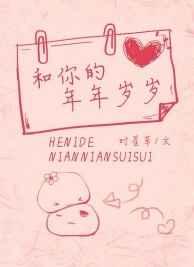 和你的
年年岁岁
HENIDE
NIANNIANSUISUI
时星草/文